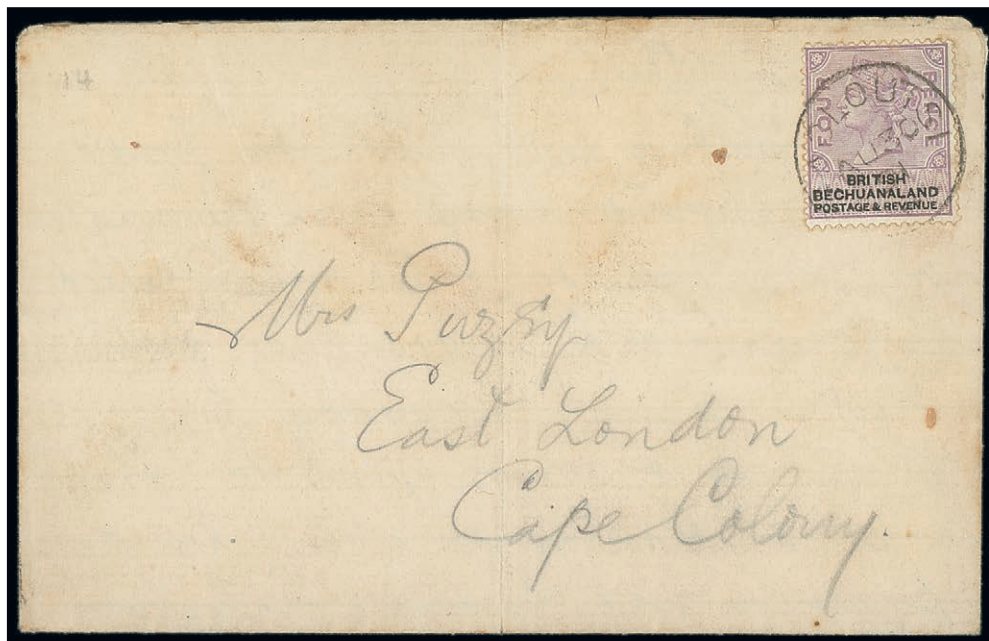 14
FOUR PENCE
LOUTGI
AU 30
BRITISH
BECHUANALAND
POSTAGE & REVENUE
Mrs Puzey
East London
Cape Colony.